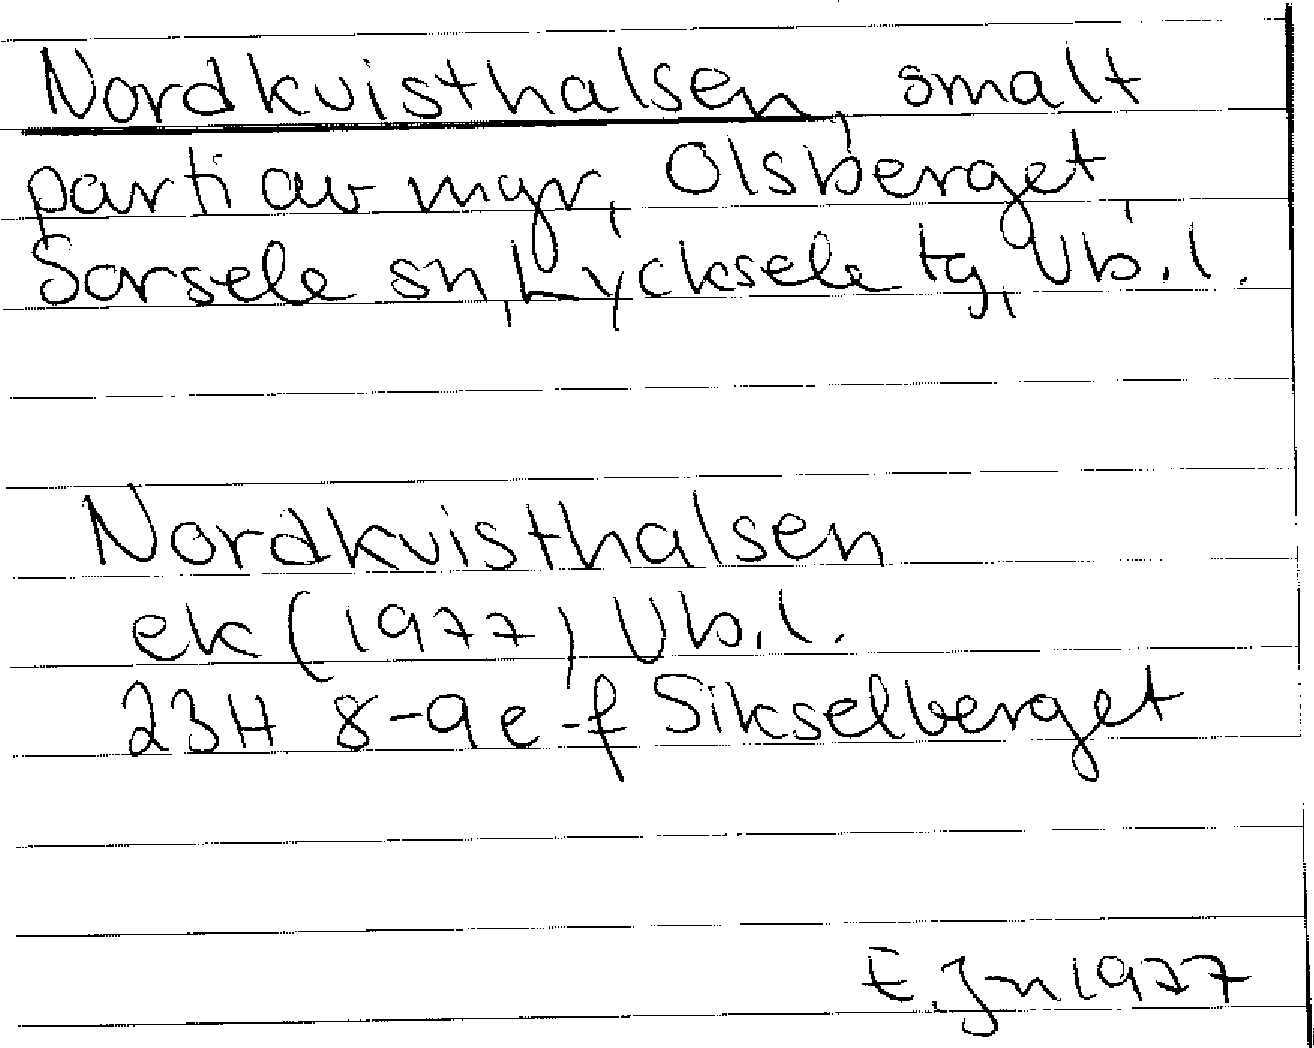 Nordkvisthalsen, smalt
parti av myr, Olsberget,
Sorsele sn, Lycksele tg, Vb.l.
Nordkvisthalsen
ek (1977) Vb.l.
23H 8-9 e-f Sikselberget
E.Jn 1977